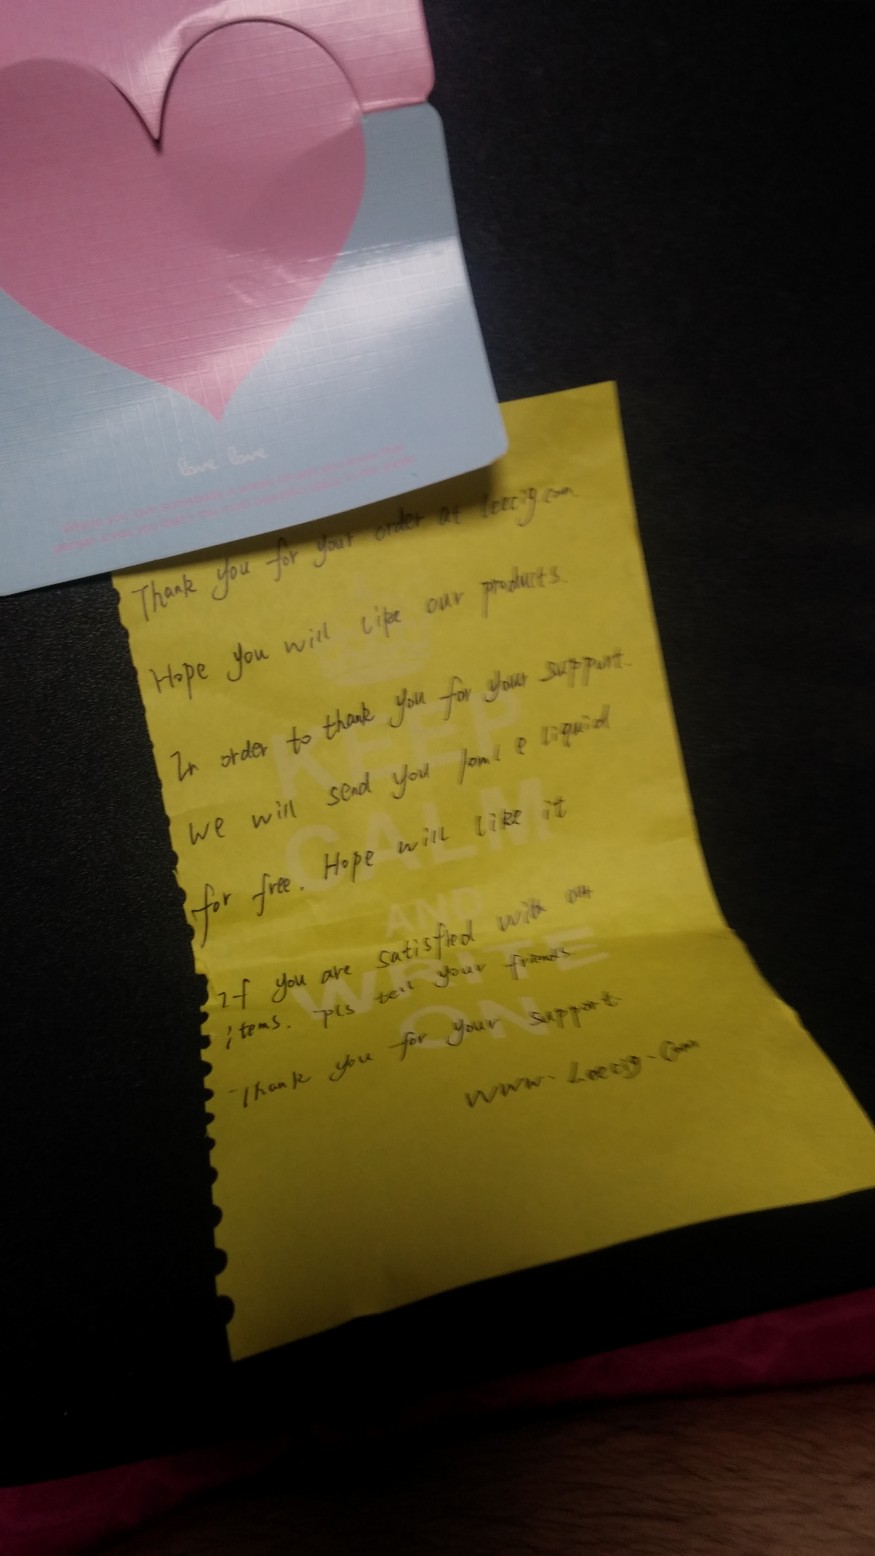 love love
Thank you for your order at leecig.com
Hope you will like our products.
In order to thank you for your support.
we will send you e liquid
for free. Hope will like it
If you are satisfied with our
items. pls tell your friends.
Thank you for your support.
www.Leecig.com
KEEP
CALM
AND
WRITE
ON